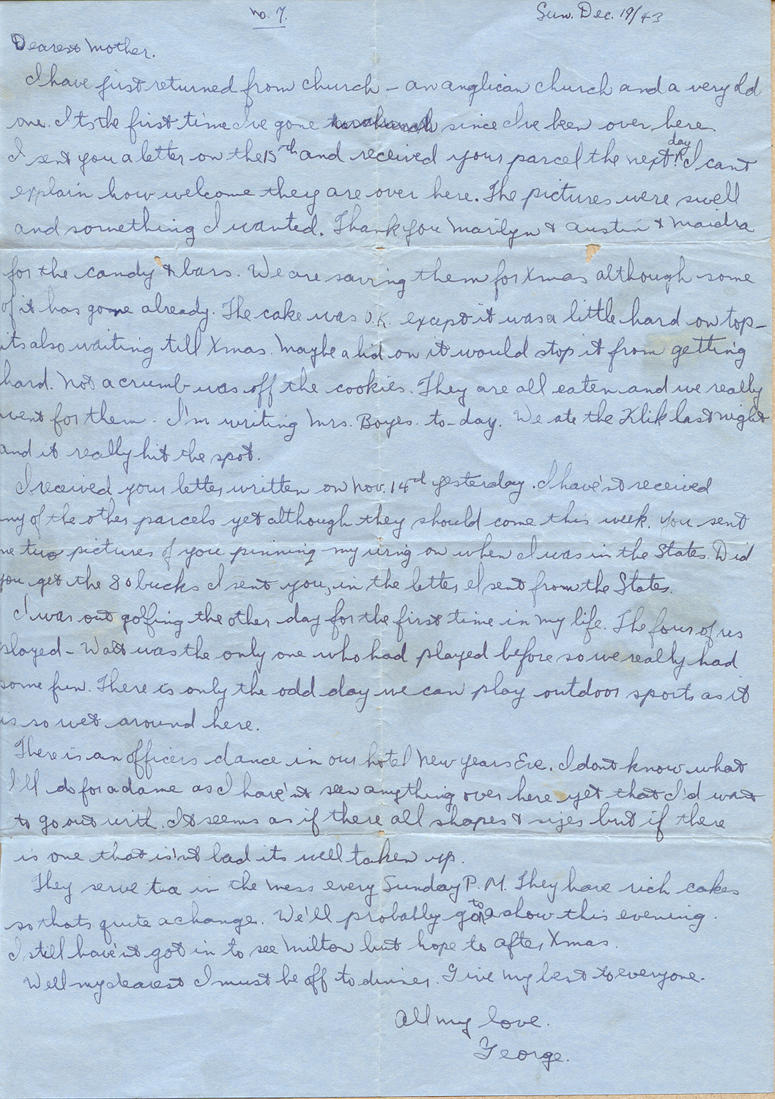 no. 7. Sun. Dec. 19/43
Dearest Mother.
I have just returned from church - an anglican church and a very old
one. Its the first time I've gone to church since I've been over here.
I sent you a letter on the 15th and received your parcel the next day. I cant
explain how welcome they are over here. The pictures were swell
and something I wanted. Thank you Marilyn & Austin & Maidra
for the candy & bars. We are saving them for Xmas although some
of it has gone already. The cake was O.K. except it was a little hard on top-
its also waiting till Xmas. Maybe a lid on it would stop it from getting
hard. Not a crumb was off the cookies. They are all eaten and we really
went for them. I'm writing Mrs. Boyes to-day. We ate the Klik last night
and it really hit the spot.
I received your letter written on Nov. 14th yesterday. I have'nt received
my of the other parcels yet although they should come this week. You sent
me two pictures of you pinning my wing on when I was in the States. Did
you get the 80 bucks I sent you, in the letter I sent from the States.
I was out golfing the other day for the first time in my life. The four of us
played - Walt was the only one who had played before so we really had
some fun. There is only the odd day we can play outdoor sports as it
is so wet around here.
There is an officers dance in our hotel New years Eve. I dont know what
I'll do for a dame as I have'nt seen anything over here yet that I'd want
to go out with. It seems as if there all shapes & sizes but if there
is one that is'nt bad its well taken up.
They serve tea in the mess every Sunday P.M. They have rich cakes
so thats quite a change. We'll probably go to a show this evening.
I still have'nt got in to see Milton but hope to after Xmas.
Well my dearest I must be off to dinner. Give my best to everyone.
All my love.
George.